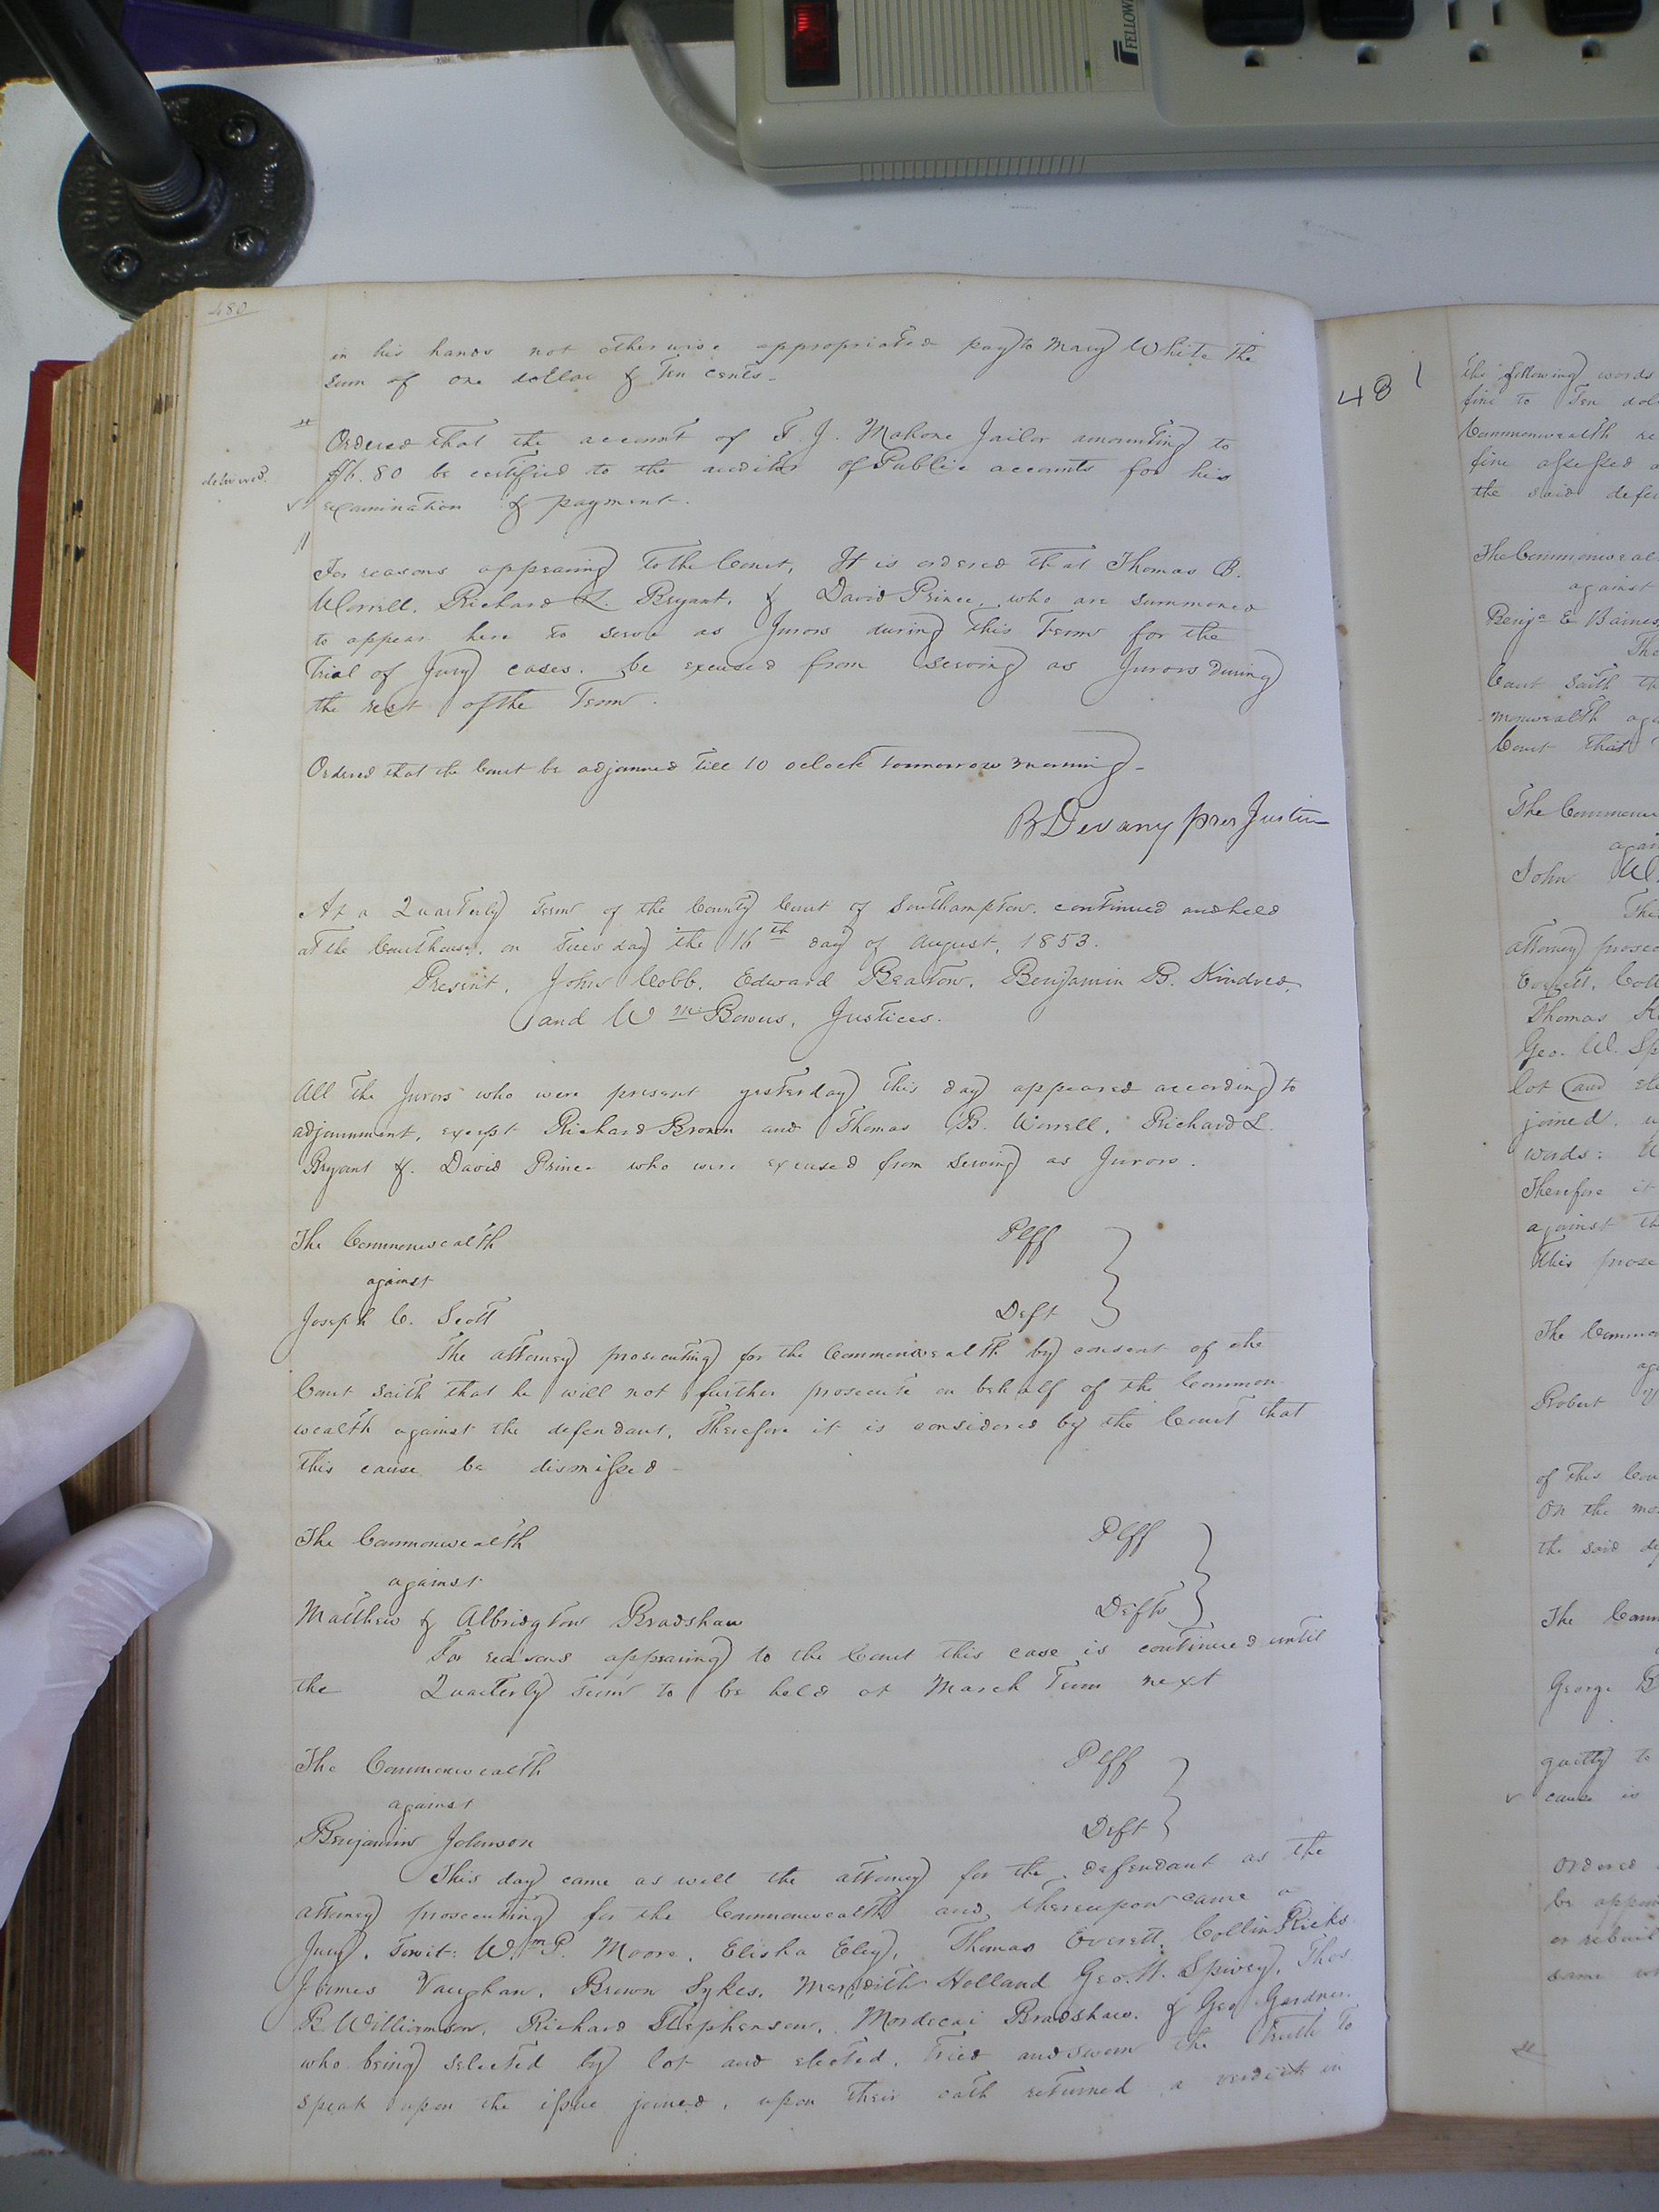 FELLOW
480
in his hands not otherwise appropriated pay to Mary White the
sum of one dollar & Ten cents.
Ordered that the account of F. J. Mahone Jailor amounting to
delivered.
$6.80 be certified to the auditor of Public accounts for his
examination & payment.
For reasons appearing to the Court, It is ordered that Thomas B.
Worrell, Richard L. Bryant, & David Prince, who are summoned
to appear here to serve as Jurors during this Term for the
Trial of Jury cases, be excused from serving as Jurors during
the rest of the Term.
Ordered that the Court be adjourned till 10 oclock tommorrow morning.
B Devany pres Justice
At a Quarterly Term of the County Court of Southampton, continued and held
at the Courthouse, on Tuesday the 16th day of August, 1853.
Present, John Cobb, Edward Beaton, Benjamin B. Kindred,
and Wm Bowers, Justices.
All the Jurors who were present yesterday this day appeared according to
adjournment, except Richard Brown and Thomas B. Worrell, Richard L.
Bryant &. David Prince who were excused from serving as Jurors.
The Commonwealth Plff
against
Joseph C. Scott Deft
The attorney prosecuting for the Commonwealth by consent of the
Court saith that he will not further prosecute on behalf of the Common-
wealth against the defendant, Therefore it is considered by the Court that
this cause be dismissed
The Commonwealth Plff
against
Matthew & Albridgton Bradshaw Defts
For reasons appearing to the Court this case is continued until
the Quarterly Term to be held at March Term next
The Commonwealth Plff
against
Benjamin Johnson Deft
This day came as well the attorney for the defendant as the
attorney prosecuting for the Commonwealth and thereupon came a
Jury, Towit: Wm P. Moore, Elisha Eley, Thomas Everett, Collin Ricks
James Vaughan, Brown Sykes, Meredith Holland Geo. W. Spivey, Thos
R. Williamson, Richard Stephenson, Mordecai Bradshaw, & Geo Gardner,
who being selected by lot and elected, tried and sworn the truth to
speak upon the issue joined, upon their oath returned a verdict in
481
the following words
fine to Ten dol
Commonwealth re
fine assessed a
the said defe
The Commonweal
against
Benja E Baines
The
Court saith th
monwealth aga
Court that
The Commonw
again
John W
The
attorney prosec
Everett, Coll
Thomas
Geo. W. Sp
lot and ele
joined, u
words:
Therefore it
against th
this prose
The Commo
aga
Robert
of this Cou
On the mo
the said de
The Comm
George B
guilty to
cause is
Ordered
be appoin
or rebuil
same